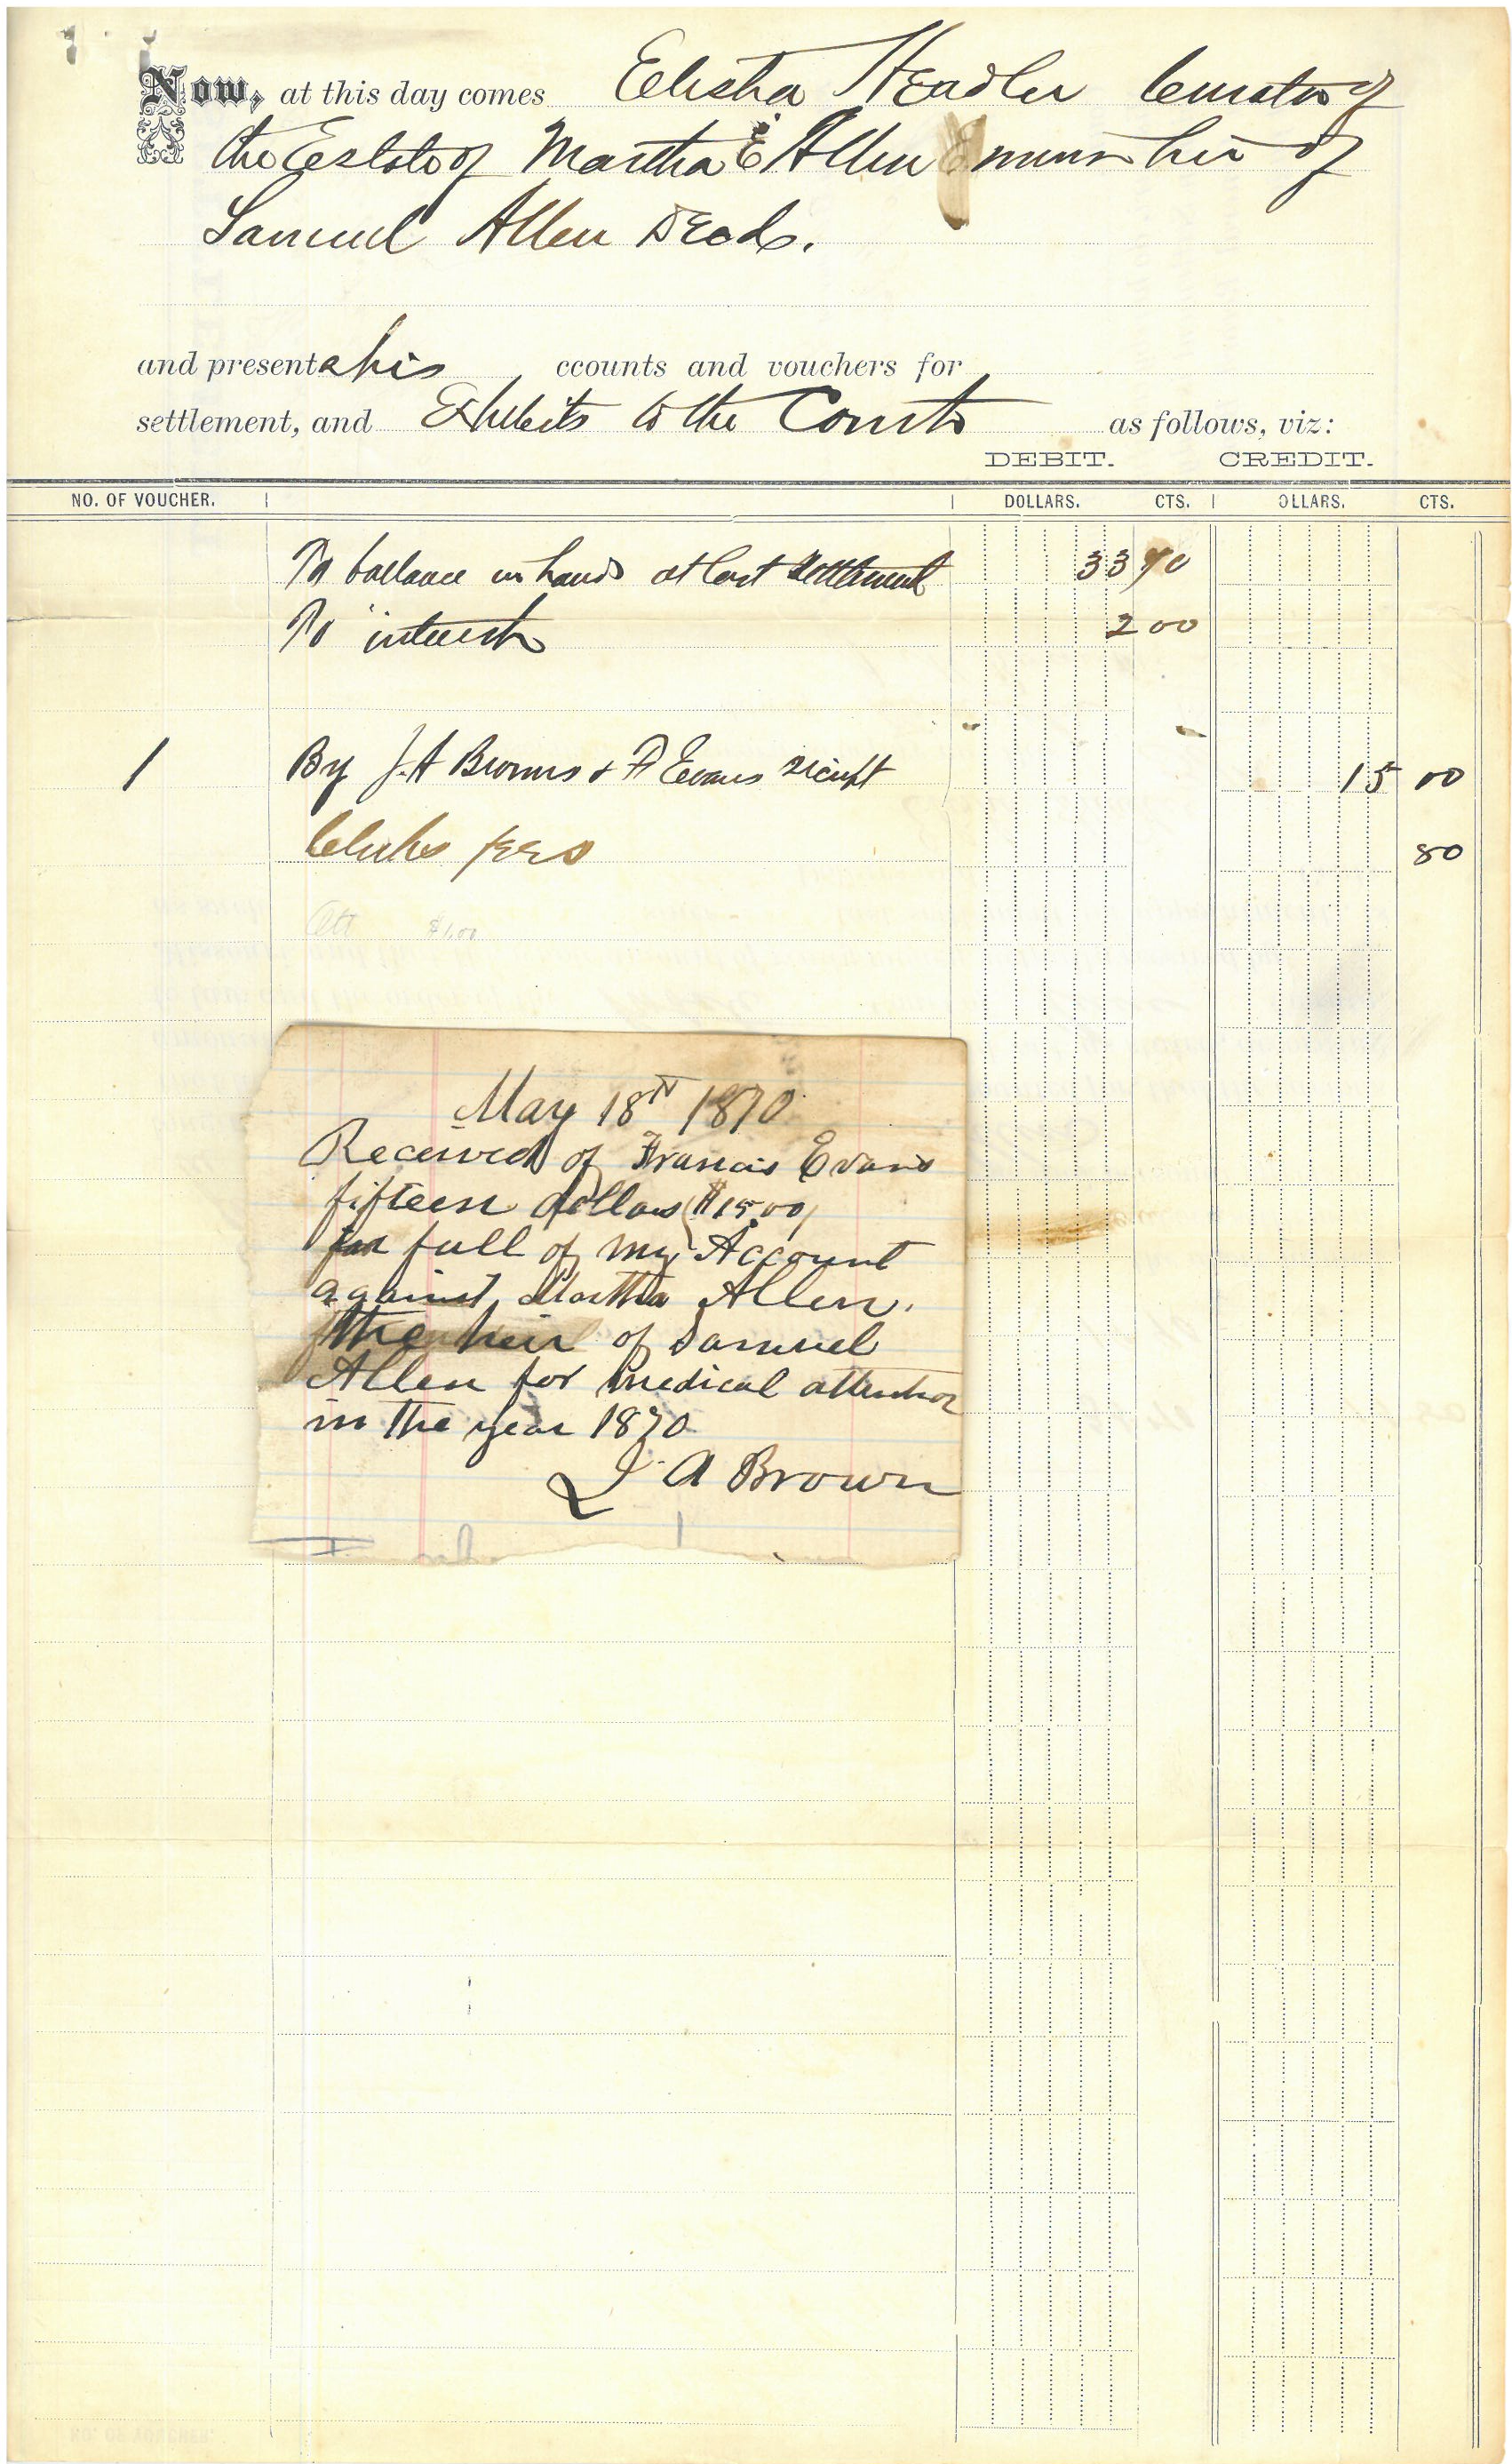 Now, at this day comes Elisha Headlee Curator of
the Estate of Martha E Allen minor heir of
Samuel Allen Decd.
and presents his ccounts and vouchers for
settlement, and Exhibits to the Court as follows, viz:
DEBIT. CREDIT.
NO. OF VOUCHER. DOLLARS. CTS. OLLARS. CTS.
To ballance in hands at last settlement 33 40
To interest 2 00
1 By J. A Browns & F Evans reciept 15 00
Clerks fees 80
Att $1.00
May 18th 1870
Received of Francis Evans
fifteen dollars ($15.00)
full of my Account
against Martha Allen.
the heir of Samuel
Allen for medical attention
in the year 1870
J. A Brown